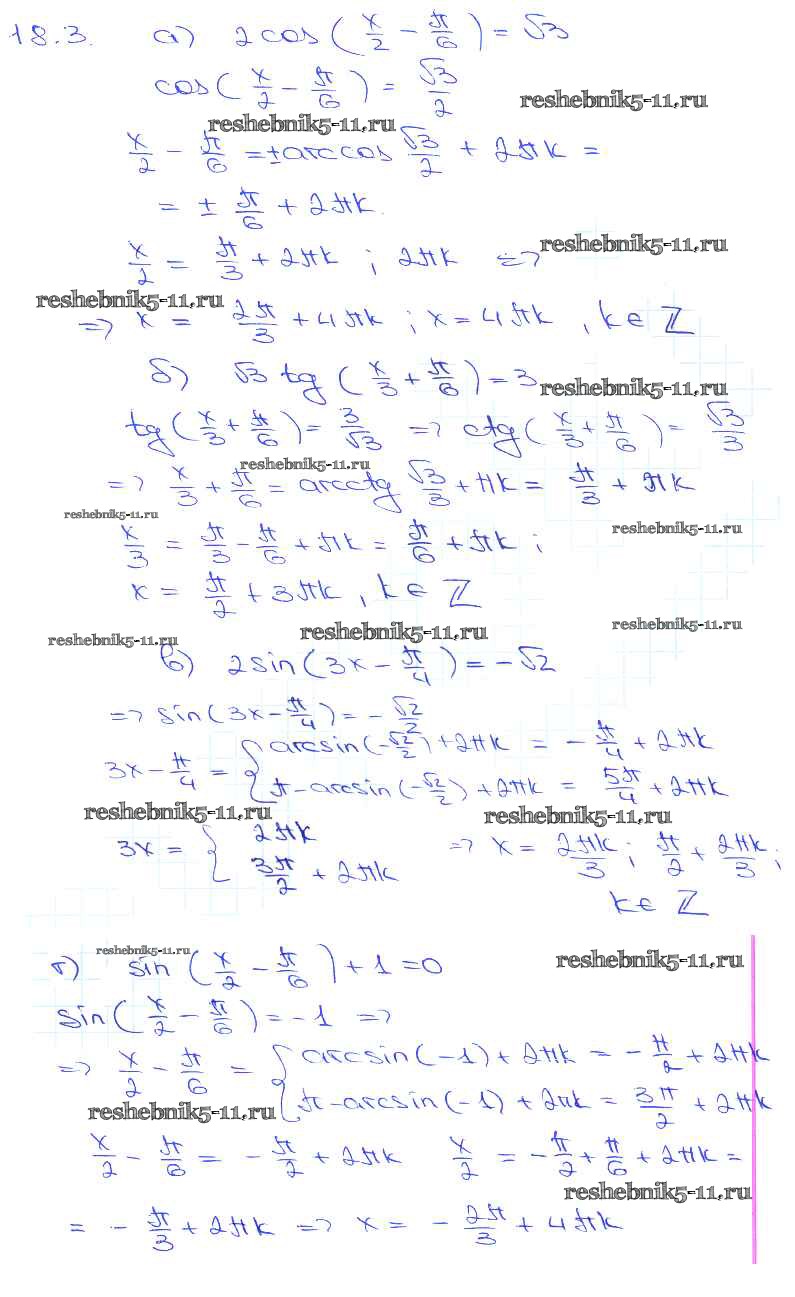 18.3. а) 2cos(x/2 - π/6) = √3
cos(x/2 - π/6) = √3/2
reshebnik5-11.ru
reshebnik5-11.ru
x/2 - π/6 = ±arccos √3/2 + 2πk =
= ± π/6 + 2πk.
reshebnik5-11.ru
x/2 = π/3 + 2πk ; 2πk =>
reshebnik5-11.ru
=> x = 2π/3 + 4πk ; x = 4πk , k ∈ ℤ
б) √3 tg(x/3 + π/6) = 3
reshebnik5-11.ru
tg(x/3 + π/6) = 3/√3 => ctg(x/3 + π/6) = √3/3
reshebnik5-11.ru
=> x/3 + π/6 = arcctg √3/3 + πk = π/3 + πk
reshebnik5-11.ru
reshebnik5-11.ru
x/3 = π/3 - π/6 + πk = π/6 + πk ;
x = π/2 + 3πk , k ∈ ℤ
reshebnik5-11.ru
reshebnik5-11.ru
reshebnik5-11.ru
в) 2sin(3x - π/4) = -√2
=> sin(3x - π/4) = -√2/2
3x - π/4 = { arcsin(-√2/2) + 2πk = -π/4 + 2πk
π - arcsin(-√2/2) + 2πk = 5π/4 + 2πk
reshebnik5-11.ru
reshebnik5-11.ru
3x = { 2πk
3π/2 + 2πk => x = 2πk/3 ; π/2 + 2πk/3 ;
k ∈ ℤ
reshebnik5-11.ru
reshebnik5-11.ru
г) sin(x/2 - π/6) + 1 = 0
sin(x/2 - π/6) = -1 =>
=> x/2 - π/6 = { arcsin(-1) + 2πk = -π/2 + 2πk
π - arcsin(-1) + 2πk = 3π/2 + 2πk
reshebnik5-11.ru
x/2 - π/6 = -π/2 + 2πk x/2 = -π/2 + π/6 + 2πk =
reshebnik5-11.ru
= -π/3 + 2πk => x = -2π/3 + 4πk